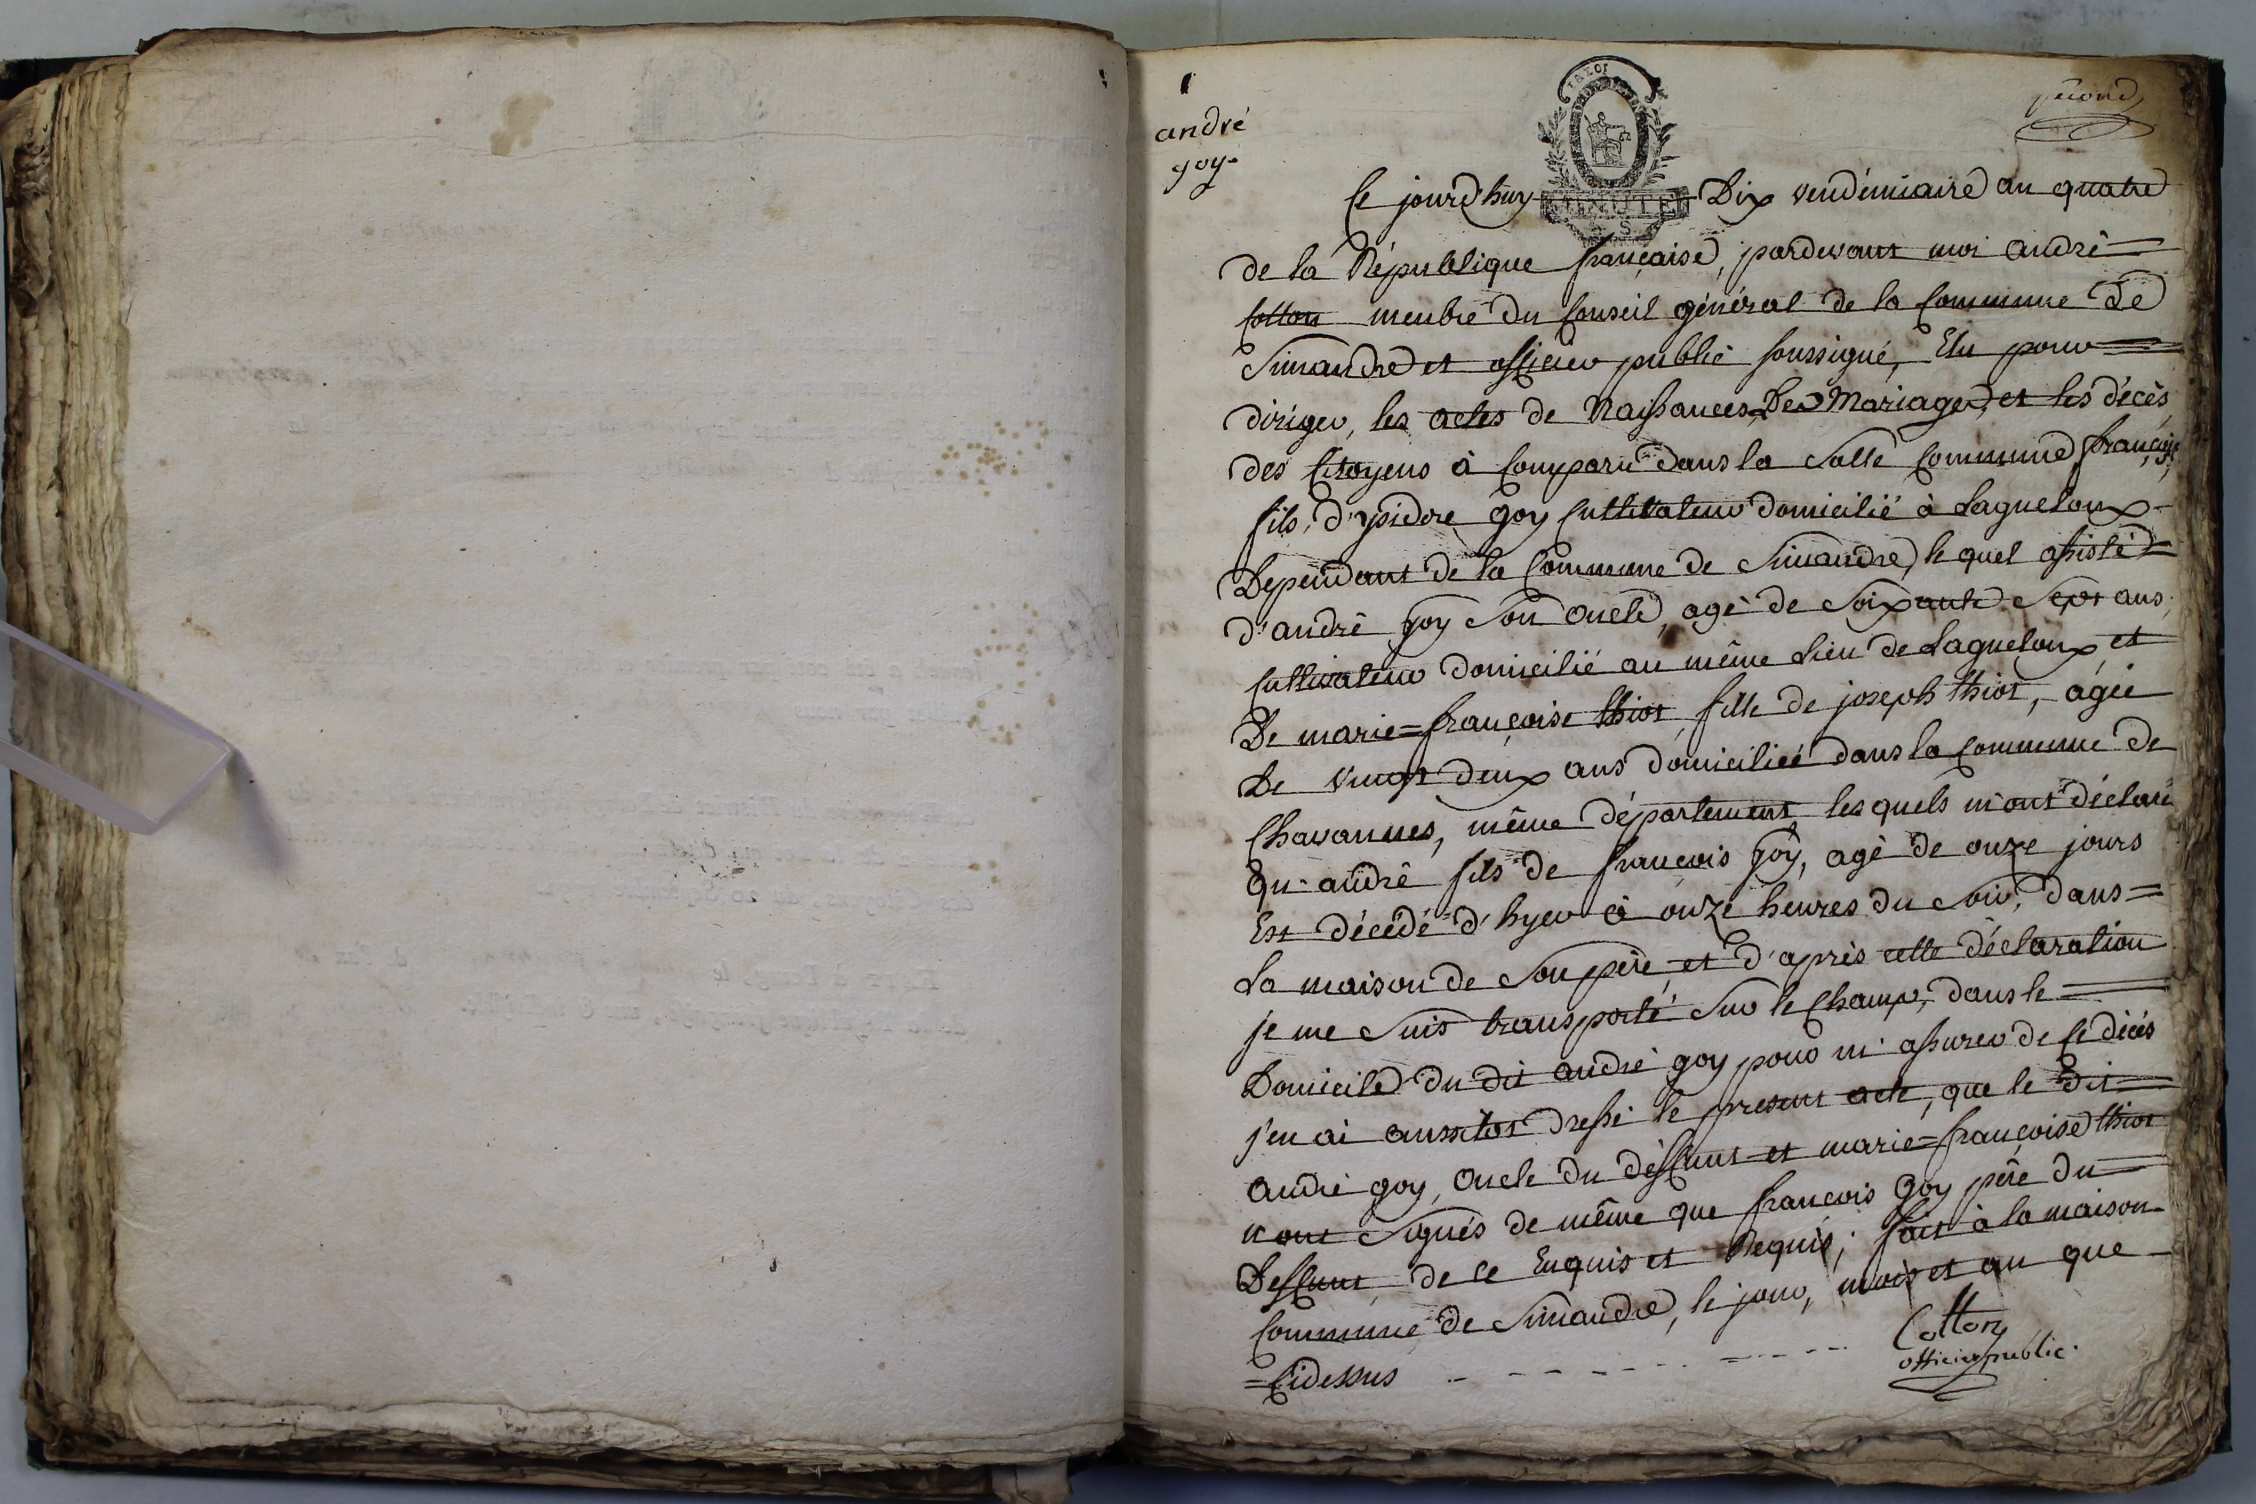 1
second
andré
goy
Ce jourd'huy Dix vendémiaire an quatre
MINUTE
de la République française, pardevant moi andré =
Cotton membre du Conseil général de la Commune De
Simandre et officier public soussigné, Elu pour =
diriger, les actes de Naissances, De Mariages, et les décès
des Citoyens à Comparu Dans la Salle Commune, françois,
fils, d'ysidore Goy Cultivateur Domicilié à Lagueloux -
Dependant de la Commune de Simandre, le quel assisté =
d'andré Goy Son oncle, agé de Soixante Sept ans,
Cultivateur Domicilié au même Lieu de Lagueloux, et
De marie=françoise thiot, fille de joseph thiot, agée
De vingt Deux ans Domiciliée dans la Commune de
Chavannes, même Département les quels m'ont déclaré
Qu'andré fils de françois Goy, agé de onze jours
Est décédé d'hyer à onze heures du Soir, Dans =
La maison de Son père, et d'après cette déclaration
je me Suis transporté Sur le Champ, dans le =
Domicile du dit andré goy pour m'assurer de Ce décès
j'en ai aussitot dressé le present acte, que le Dit =
andré goy, oncle du déffunt et marie=françoise thiot
n'ont Signés de même que francois Goy père du =
Deffunt, de ce Enquis et Requis, fait à la maison
Commune de Simandre, le jour, mois et an que -
= Cidessus
Cotton
officier public.